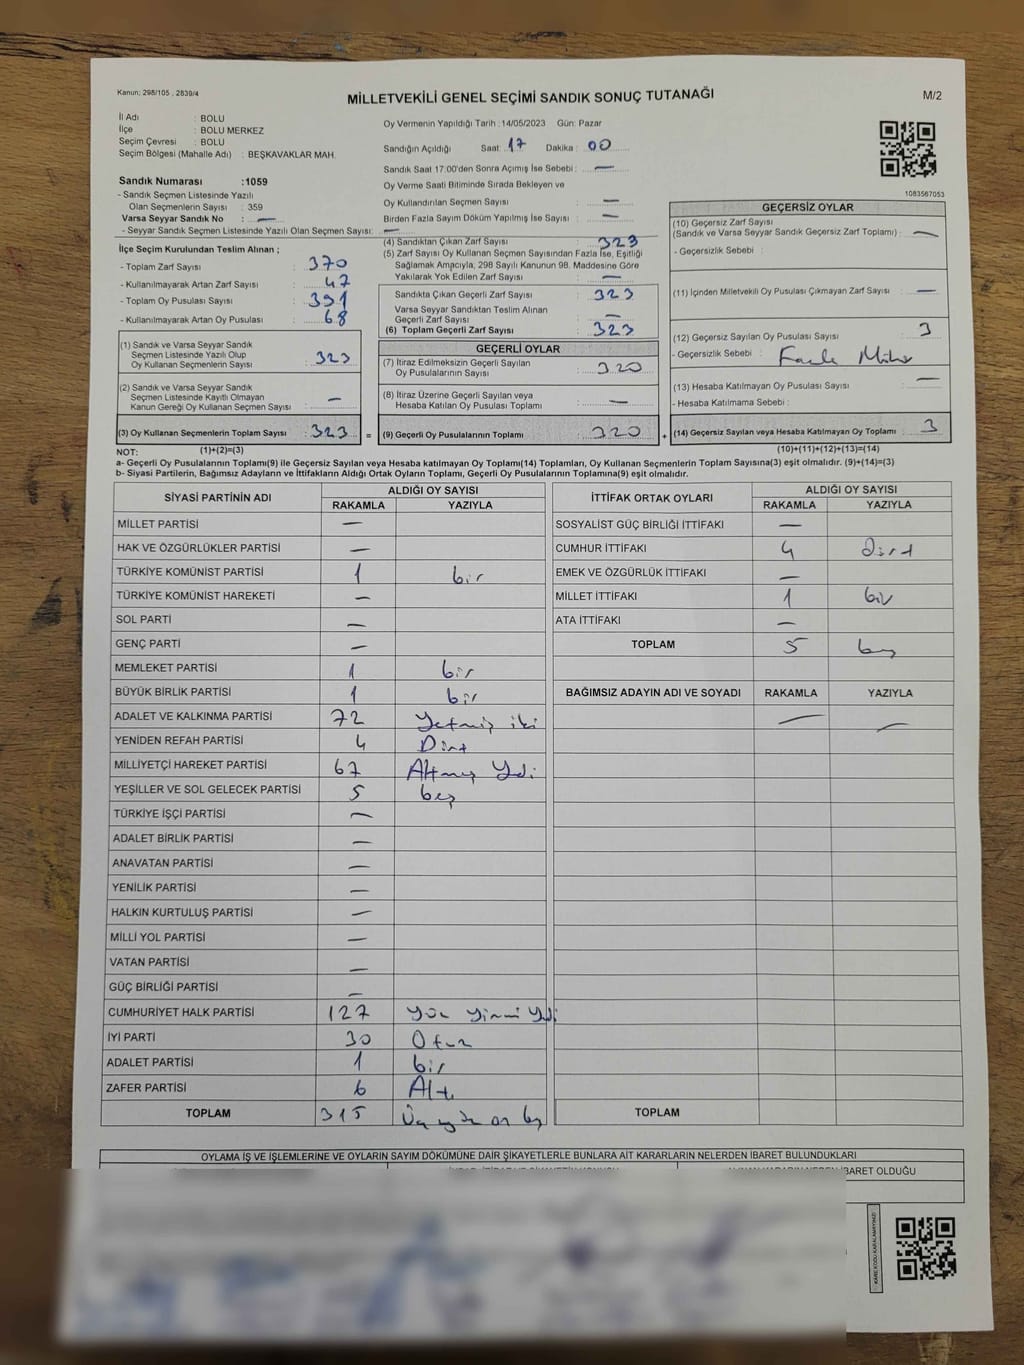 Kanun: 298/105 . 2839/4
MİLLETVEKİLİ GENEL SEÇİMİ SANDIK SONUÇ TUTANAĞI
M/2
İl Adı : BOLU
İlçe : BOLU MERKEZ
Seçim Çevresi : BOLU
Seçim Bölgesi (Mahalle Adı) : BEŞKAVAKLAR MAH.
Sandık Numarası :1059
- Sandık Seçmen Listesinde Yazılı
Olan Seçmenlerin Sayısı : 359
Varsa Seyyar Sandık No : —
- Seyyar Sandık Seçmen Listesinde Yazılı Olan Seçmen Sayısı: —
İlçe Seçim Kurulundan Teslim Alınan ;
- Toplam Zarf Sayısı : 370
- Kullanılmayarak Artan Zarf Sayısı : 47
- Toplam Oy Pusulası Sayısı : 391
- Kullanılmayarak Artan Oy Pusulası : 68
(1) Sandık ve Varsa Seyyar Sandık
Seçmen Listesinde Yazılı Olup
Oy Kullanan Seçmenlerin Sayısı : 323
(2) Sandık ve Varsa Seyyar Sandık
Seçmen Listesinde Kayıtlı Olmayan
Kanun Gereği Oy Kullanan Seçmen Sayısı : —
(3) Oy Kullanan Seçmenlerin Toplam Sayısı : 323 =
Oy Vermenin Yapıldığı Tarih :14/05/2023 Gün: Pazar
Sandığın Açıldığı Saat: 17 Dakika : 00
Sandık Saat 17:00'den Sonra Açımış İse Sebebi : —
Oy Verme Saati Bitiminde Sırada Bekleyen ve
Oy Kullandırılan Seçmen Sayısı : —
Birden Fazla Sayım Döküm Yapılmış İse Sayısı : —
(4) Sandıktan Çıkan Zarf Sayısı : 323
(5) Zarf Sayısı Oy Kullanan Seçmen Sayısından Fazla İse, Eşitliği
Sağlamak Amacıyla, 298 Sayılı Kanunun 98. Maddesine Göre
Yakılarak Yok Edilen Zarf Sayısı : —
Sandıkta Çıkan Geçerli Zarf Sayısı : 323
Varsa Seyyar Sandıktan Teslim Alınan
Geçerli Zarf Sayısı : —
(6) Toplam Geçerli Zarf Sayısı : 323
GEÇERLİ OYLAR
(7) İtiraz Edilmeksizin Geçerli Sayılan
Oy Pusulalarının Sayısı : 320
(8) İtiraz Üzerine Geçerli Sayılan veya
Hesaba Katılan Oy Pusulası Toplamı : —
(9) Geçerli Oy Pusulalarının Toplamı : 320 +
1083567053
GEÇERSİZ OYLAR
(10) Geçersiz Zarf Sayısı
(Sandık ve Varsa Seyyar Sandık Geçersiz Zarf Toplamı) : —
- Geçersizlik Sebebi :
(11) İçinden Milletvekili Oy Pusulası Çıkmayan Zarf Sayısı : —
(12) Geçersiz Sayılan Oy Pusulası Sayısı : 3
- Geçersizlik Sebebi :
(13) Hesaba Katılmayan Oy Pusulası Sayısı : —
- Hesaba Katılmama Sebebi :
(14) Geçersiz Sayılan veya Hesaba Katılmayan Oy Toplamı : 3
NOT: (1)+(2)=(3) (10)+(11)+(12)+(13)=(14)
a- Geçerli Oy Pusulalarının Toplamı(9) ile Geçersiz Sayılan veya Hesaba katılmayan Oy Toplamı(14) Toplamları, Oy Kullanan Seçmenlerin Toplam Sayısına(3) eşit olmalıdır. (9)+(14)=(3)
b- Siyasi Partilerin, Bağımsız Adayların ve İttifakların Aldığı Ortak Oyların Toplamı, Geçerli Oy Pusulalarının Toplamına(9) eşit olmalıdır.
SİYASİ PARTİNİN ADI ALDIĞI OY SAYISI
RAKAMLA YAZIYLA
MİLLET PARTİSİ —
HAK VE ÖZGÜRLÜKLER PARTİSİ —
TÜRKİYE KOMÜNİST PARTİSİ 1 bir
TÜRKİYE KOMÜNİST HAREKETİ —
SOL PARTİ —
GENÇ PARTİ —
MEMLEKET PARTİSİ 1 bir
BÜYÜK BİRLİK PARTİSİ 1 bir
ADALET VE KALKINMA PARTİSİ 72 Yetmiş iki
YENİDEN REFAH PARTİSİ 4 Dört
MİLLİYETÇİ HAREKET PARTİSİ 67 Altmış Yedi
YEŞİLLER VE SOL GELECEK PARTİSİ 5 beş
TÜRKİYE İŞÇİ PARTİSİ —
ADALET BİRLİK PARTİSİ —
ANAVATAN PARTİSİ —
YENİLİK PARTİSİ —
HALKIN KURTULUŞ PARTİSİ —
MİLLİ YOL PARTİSİ —
VATAN PARTİSİ —
GÜÇ BİRLİĞİ PARTİSİ —
CUMHURİYET HALK PARTİSİ 127 Yüz Yirmi Yedi
İYİ PARTİ 30 Otuz
ADALET PARTİSİ 1 bir
ZAFER PARTİSİ 6 Altı
TOPLAM 315 Üç yüz on beş
İTTİFAK ORTAK OYLARI ALDIĞI OY SAYISI
RAKAMLA YAZIYLA
SOSYALİST GÜÇ BİRLİĞİ İTTİFAKI —
CUMHUR İTTİFAKI 4 Dört
EMEK VE ÖZGÜRLÜK İTTİFAKI —
MİLLET İTTİFAKI 1 bir
ATA İTTİFAKI —
TOPLAM 5 beş
BAĞIMSIZ ADAYIN ADI VE SOYADI RAKAMLA YAZIYLA
— —
TOPLAM
OYLAMA İŞ VE İŞLEMLERİNE VE OYLARIN SAYIM DÖKÜMÜNE DAİR ŞİKAYETLERLE BUNLARA AİT KARARLARIN NELERDEN İBARET BULUNDUKLARI
İBARET OLDUĞU
KARE KODU KARALAMAYINIZ!